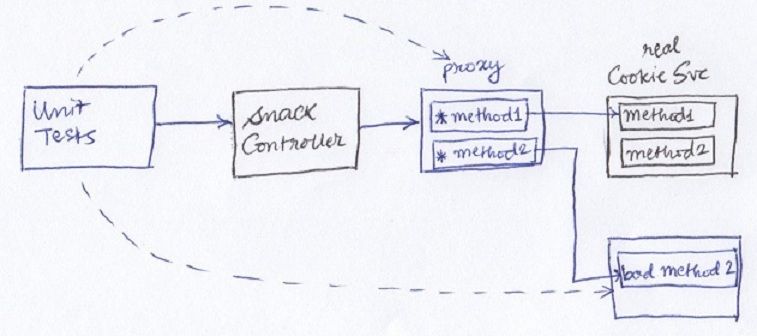 Unit
Tests
snack
Controller
proxy
* method1
* method2
real
Cookie Svc
method1
method2
bad method 2